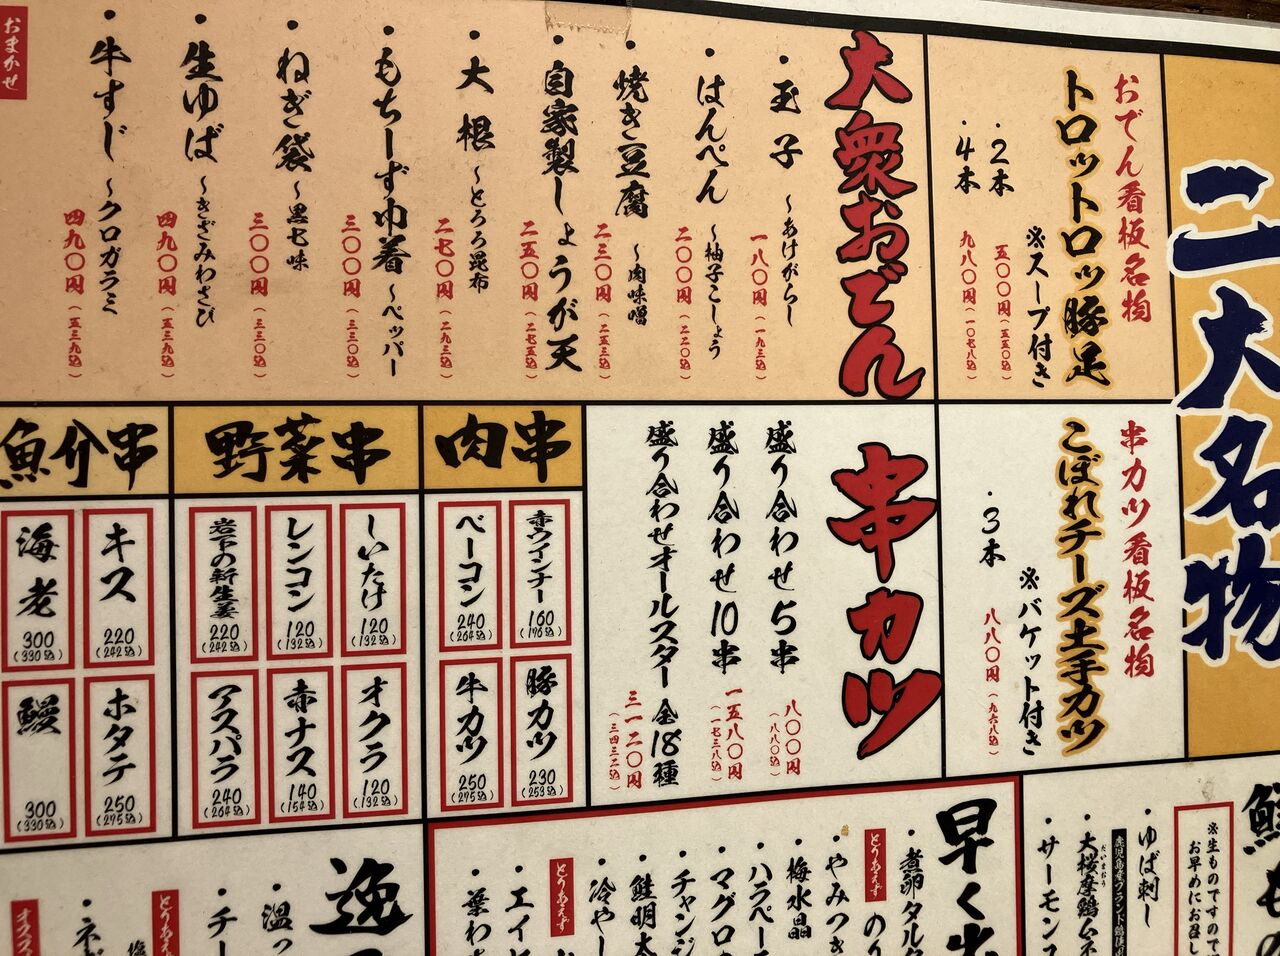 二大名物
おでん看板名物
トロットロッ豚足
※スープ付き
・2本 五〇〇円(五五〇込)
・4本 九八〇円(一〇七八込)
串カツ看板名物
こぼれチーズ土手カツ
※バケット付き
・3本 八八〇円(九六八込)
大衆おでん
・玉子 〜あけがらし 一八〇円(一九三込)
・はんぺん 〜柚子こしょう 二〇〇円(二二〇込)
・焼き豆腐 〜肉味噌 二三〇円(二五三込)
・自家製しょうが天 二五〇円(二七五込)
・大根 〜とろろ昆布 二七〇円(二九三込)
・もちーず巾着 〜ペッパー 三〇〇円(三三〇込)
・ねぎ袋 〜黒七味 三〇〇円(三三〇込)
・生ゆば 〜きざみわさび 四九〇円(五三九込)
・牛すじ 〜クロガラミ 四九〇円(五三九込)
おまかせ
串カツ
盛り合わせ5串 八〇〇円(八八〇込)
盛り合わせ10串 一五八〇円(一七三八込)
盛り合わせオールスター 全18種 三一二〇円(三四三二込)
肉串
赤ウインナー 160(176込)
豚カツ 230(253込)
ベーコン 240(264込)
牛カツ 250(275込)
野菜串
しいたけ 120(132込)
オクラ 120(132込)
レンコン 120(132込)
赤ナス 140(154込)
岩下の新生姜 220(242込)
アスパラ 240(264込)
魚介串
キス 220(242込)
ホタテ 250(275込)
海老 300(330込)
鰻 300(330込)
※生ものですので
お早めにお召し
・ゆば刺し
鹿児島産ブランド鶏使用
・大桜摩鶏ムネ
だいまおう
・サーモン
早く
・煮卵タルタ
とりあえず
・のり
・やみつき
・梅水晶
・ハラペー
・マグロ
・チャンジ
・鮭明太
・冷やし
とりあえず
・エイヒ
・葉わさ
逸
・温
・チー
とりあえず
・ネギ
オススメ